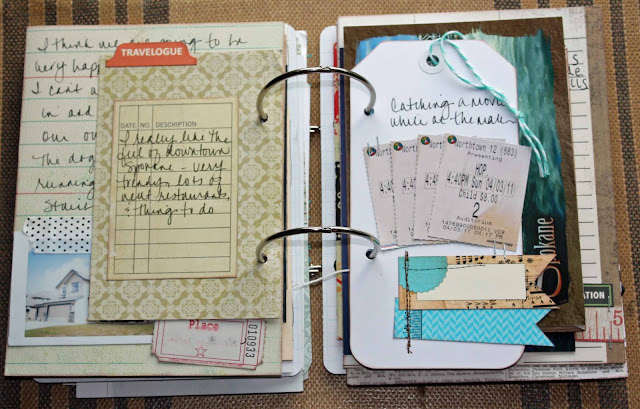 I think we are going to be
very happy
I can't wa
in and
Our ou
The dog
running
Stair
TRAVELOGUE
DATE NO. DESCRIPTION
I really like the
feel of downtown
Spokane - very
trendy, lots of
neat restaurants,
& things to do
Place
010933
Catching a movie
while at the mall
Northtown 12 (663)
Presenting
HOP
4:40PM Sun 04/03/11
Child $8.00
2
Auditorium
04/03/11 04:17 PM
4:40P
4:40P
4:40P
Spokane
5